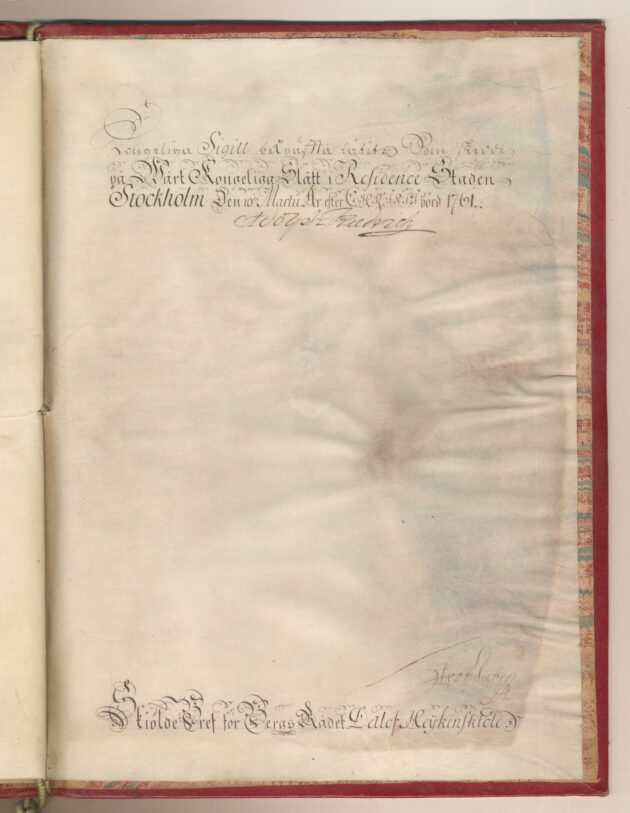 Kongeliga Sigill bekräfta låtit Som skedde
på Wårt Kongeliga Slått i Residence Staden
Stockholm Den 10. Martii År efter CHRISTI börd 1761.
Adolph Friedrich
Skiölde Bref för Bergs Rådet Detlof Heÿkenskiöld